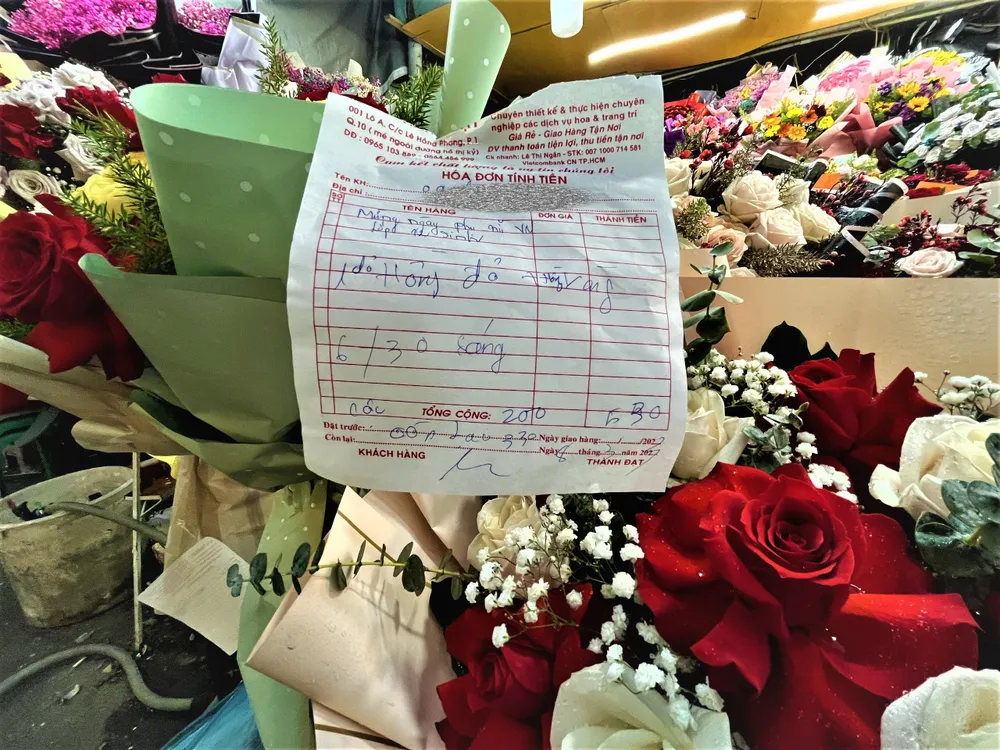 001 Lô A, C/c Lê Hồng Phong, P.1
Q.10 (mé ngoài đường hồ thị kỷ)
DĐ: 0965 103 889
Chuyên thiết kế & thực hiện chuyên
nghiệp các dịch vụ hoa & trang trí
Giá Rẻ - Giao Hàng Tận Nơi
DV thanh toán tiện lợi, thu tiền tận nơi
Cá nhân: Lê Thị Ngân - STK: 007 1000 714 581
Vietcombank CN TP.HCM
Cam kết chất lượng là uy tín chúng tôi
HÓA ĐƠN TÍNH TIỀN
Tên KH:
Địa chỉ:
TÊN HÀNG ĐƠN GIÁ THÀNH TIỀN
Mừng ngày phụ nữ VN
1 đỏ Hồng đỏ + Hồng Vàng
6/30 sáng
cọc TỔNG CỘNG: 200 530
Đặt trước:
Còn lại: 330 Ngày giao hàng: / /202
Ngày 8 tháng 3 năm 202
KHÁCH HÀNG THÀNH ĐẠT